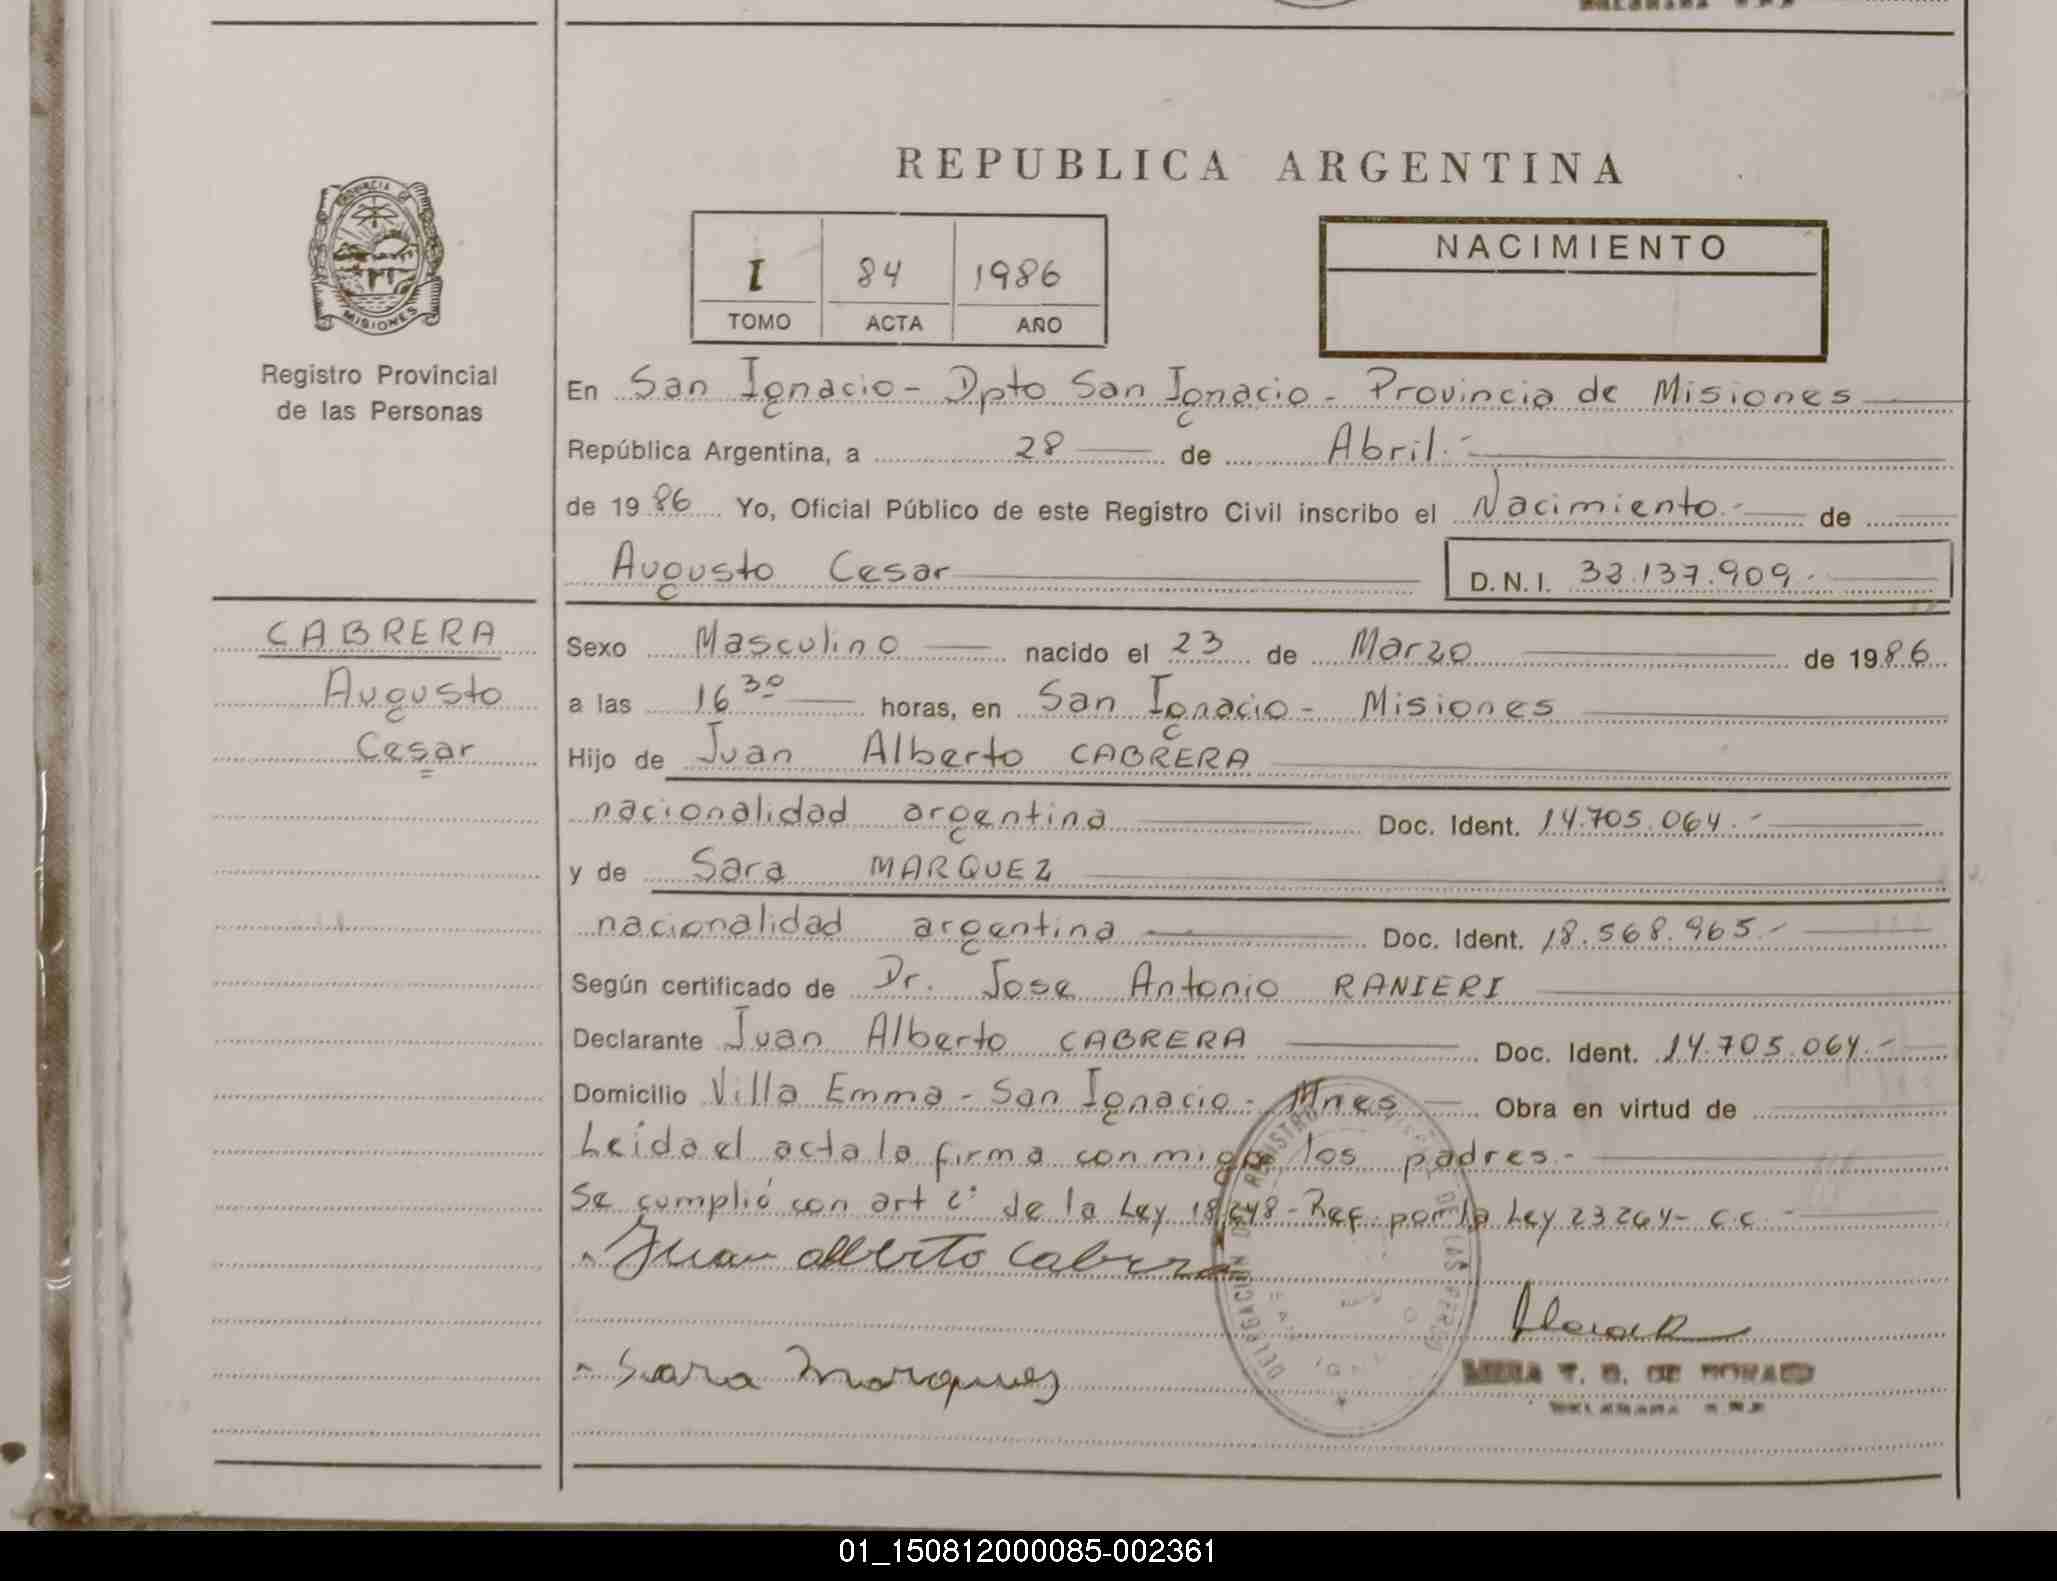 REPUBLICA ARGENTINA
PROVINCIA DE
MISIONES
Registro Provincial
de las Personas
I 84 1986
TOMO ACTA AÑO
NACIMIENTO
En San Ignacio - Dpto San Ignacio - Provincia de Misiones
República Argentina, a 28 de Abril.-
de 1986 Yo, Oficial Público de este Registro Civil inscribo el Nacimiento.- de
Augusto Cesar D.N.I. 33.137.909.-
CABRERA
Augusto
Cesar
Sexo Masculino nacido el 23 de Marzo de 1986
a las 16 30 horas, en San Ignacio - Misiones
Hijo de Juan Alberto CABRERA
nacionalidad argentina Doc. Ident. 14.705.064.-
y de Sara MARQUEZ
nacionalidad argentina Doc. Ident. 18.568.965.-
Según certificado de Dr. Jose Antonio RANIERI
Declarante Juan Alberto CABRERA Doc. Ident. 14.705.064.-
Domicilio Villa Emma - San Ignacio - Mnes Obra en virtud de
Leida el acta la firma con migo los padres.-
Se cumplió con art 2° de la Ley 18.248 - Ref. por la Ley 23264 - C.C.-
Juan Alberto Cabrera
Sara Marques
DELEGACION DE REGISTRO DE LAS PERSO
T. B. DE
01_150812000085-002361